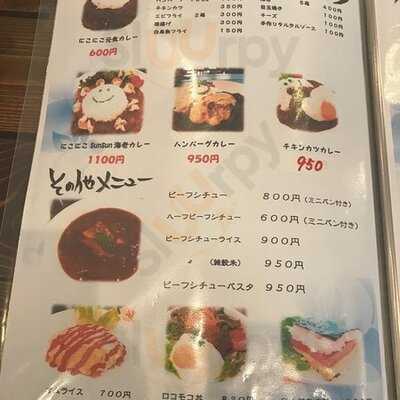 チキンカツ 350円
エビフライ 2尾 300円
唐揚げ 300円
白身魚フライ 150円
5尾 400円
目玉焼き 100円
チーズ 100円
手作りタルタルソース 100円
にこにこ元気カレー
600円
にこにこ SunSun 海老カレー
1100円
ハンバーグカレー
950円
チキンカツカレー
950
その他メニュー
ビーフシチュー 800円 (ミニパン付き)
ハーフビーフシチュー 600円 (ミニパン付き)
ビーフシチューライス 900円
〃 (雑穀米) 950円
ビーフシチューパスタ 950円
ムライス 700円
ロコモコ丼